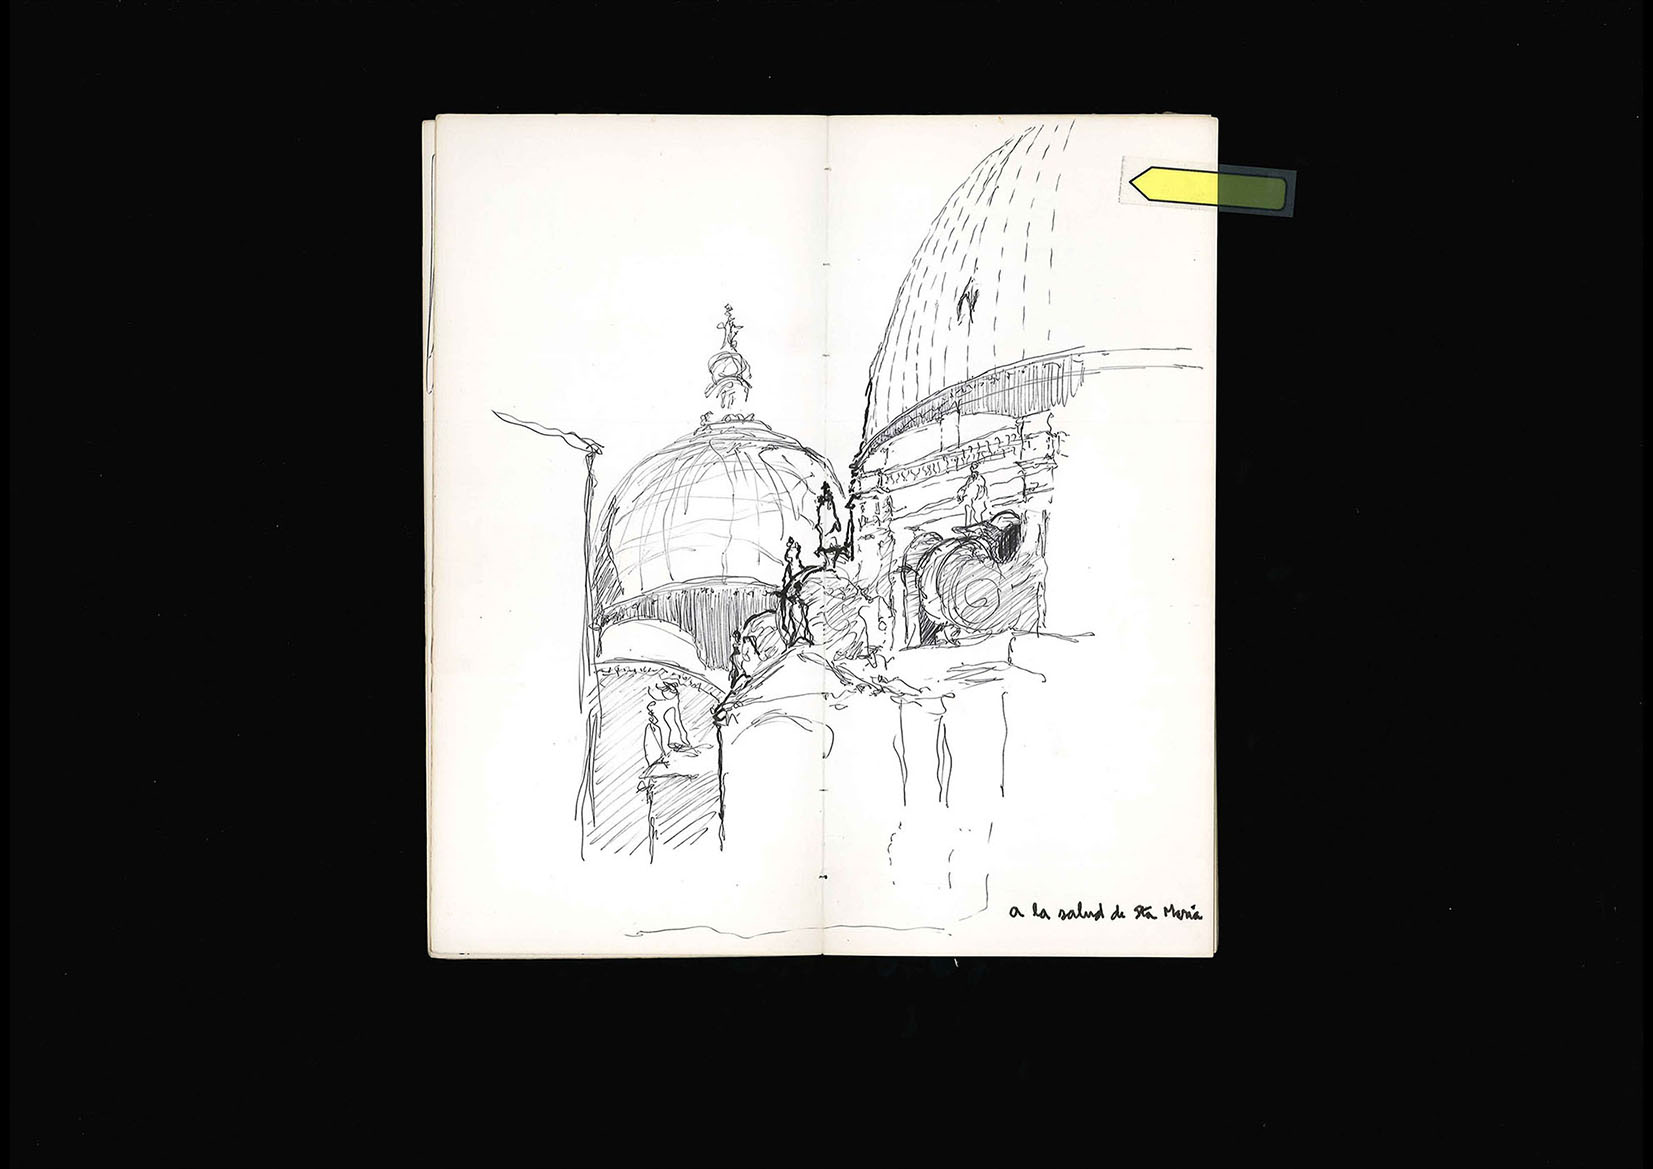 a la salud de Sta María